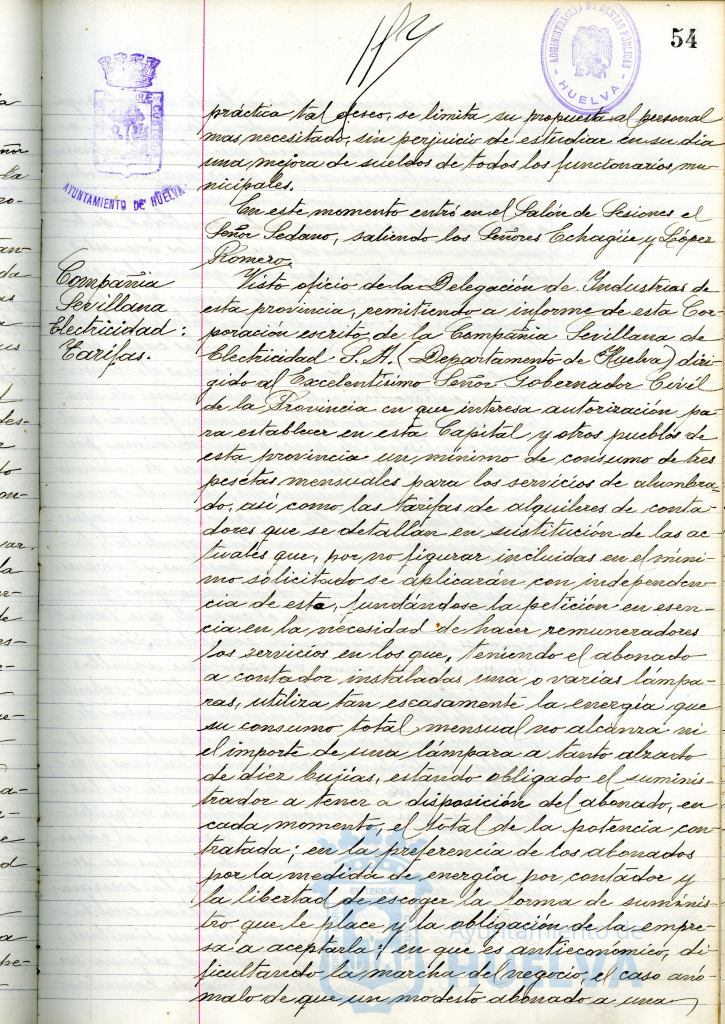 54
ADMINISTRACIÓN DE RENTAS PÚBLICAS
HUELVA
AYUNTAMIENTO DE HUELVA
práctica tal deseo, se limita su propuesta al personal
mas necesitado, sin perjuicio de estudiar en su dia
una mejora de sueldos de todos los funcionarios mu-
nicipales.
En este momento entró en el Salón de Sesiones el
Señor Sedano, saliendo los Señores Echagüe y López
Romero.
Compañia
Sevillana
Electricidad:
Tarifas.
Visto oficio de la Delegación de Industrias de
esta provincia, remitiendo a informe de esta Cor-
poración escrito de la Compañia Sevillana de
Electricidad S.A. (Departamento de Huelva) diri-
gido al Excelentisimo Señor Gobernador Civil
de la Provincia en que interesa autorización pa-
ra establecer en esta Capital y otros pueblos de
esta provincia un minimo de consumo de tres
pesetas mensuales para los servicios de alumbra-
do, asi como las tarifas de alquileres de conta-
dores que se detallan en sustitución de las ac-
tuales que, por no figurar incluidas en el mini-
mo solicitado se aplicarán con independen-
cia de esta, fundándose la petición en esen-
cia en la necesidad de hacer remuneradores
los servicios en los que, teniendo el abonado
a contador instaladas una o varias lámpa-
ras, utiliza tan escasamente la energia que
su consumo total mensual no alcanza ni
el importe de una lámpara a tanto alzado
de diez bujias, estando obligado el suminis-
trador a tener a disposición del abonado, en
cada momento, el total de la potencia con-
tratada; en la preferencia de los abonados
por la medida de energia por contador y
la libertad de escoger la forma de suminis-
tro que le place y la obligación de la empre-
sa a aceptarla; en que es antieconómico, di-
ficultando la marcha del negocio, el caso anó-
malo de que un modesto abonado a una
Ayuntamiento de
HUELVA